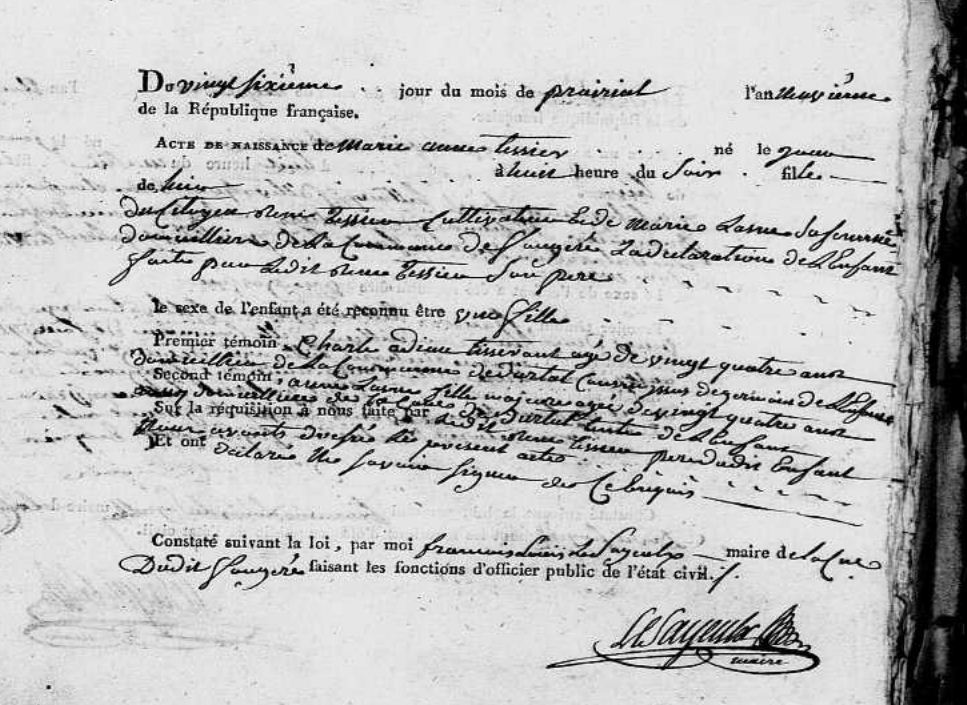 Du vingt sixième jour du mois de prairial l'an neuvième
de la République française.
ACTE DE NAISSANCE de Marie anne tessier né le jour
de hier à huit heure du Soir fille
du Citoyen rene tessier Cultivateur Et de marie Lasne Sa
domicilliers de La Commune de fougeré La declaration de L'Enfant
faite par Ledit rene tessier Son pere
le sexe de l'enfant a été reconnu être une fille
Premier témoin, Charle adieau tisserant agé de vingt quatre ans
domicillier de La Commune de durtal Cousin germin de L'Enfant
Second témoin, anne Lasne fille majeure agé de vingt quatre ans
aussy domicilliée de la Cune de durtal tente de L'Enfant
Sur la réquisition à nous faite par Ledit rene tissier pere dudit Enfant
Nous avons dressé le présent acte
Et ont déclaré Ne Savoir signer de Ce
Constaté suivant la loi, par moi francois Louis maire de la Cne
Dudit fougeré faisant les fonctions d'officier public de l'état civil.
maire